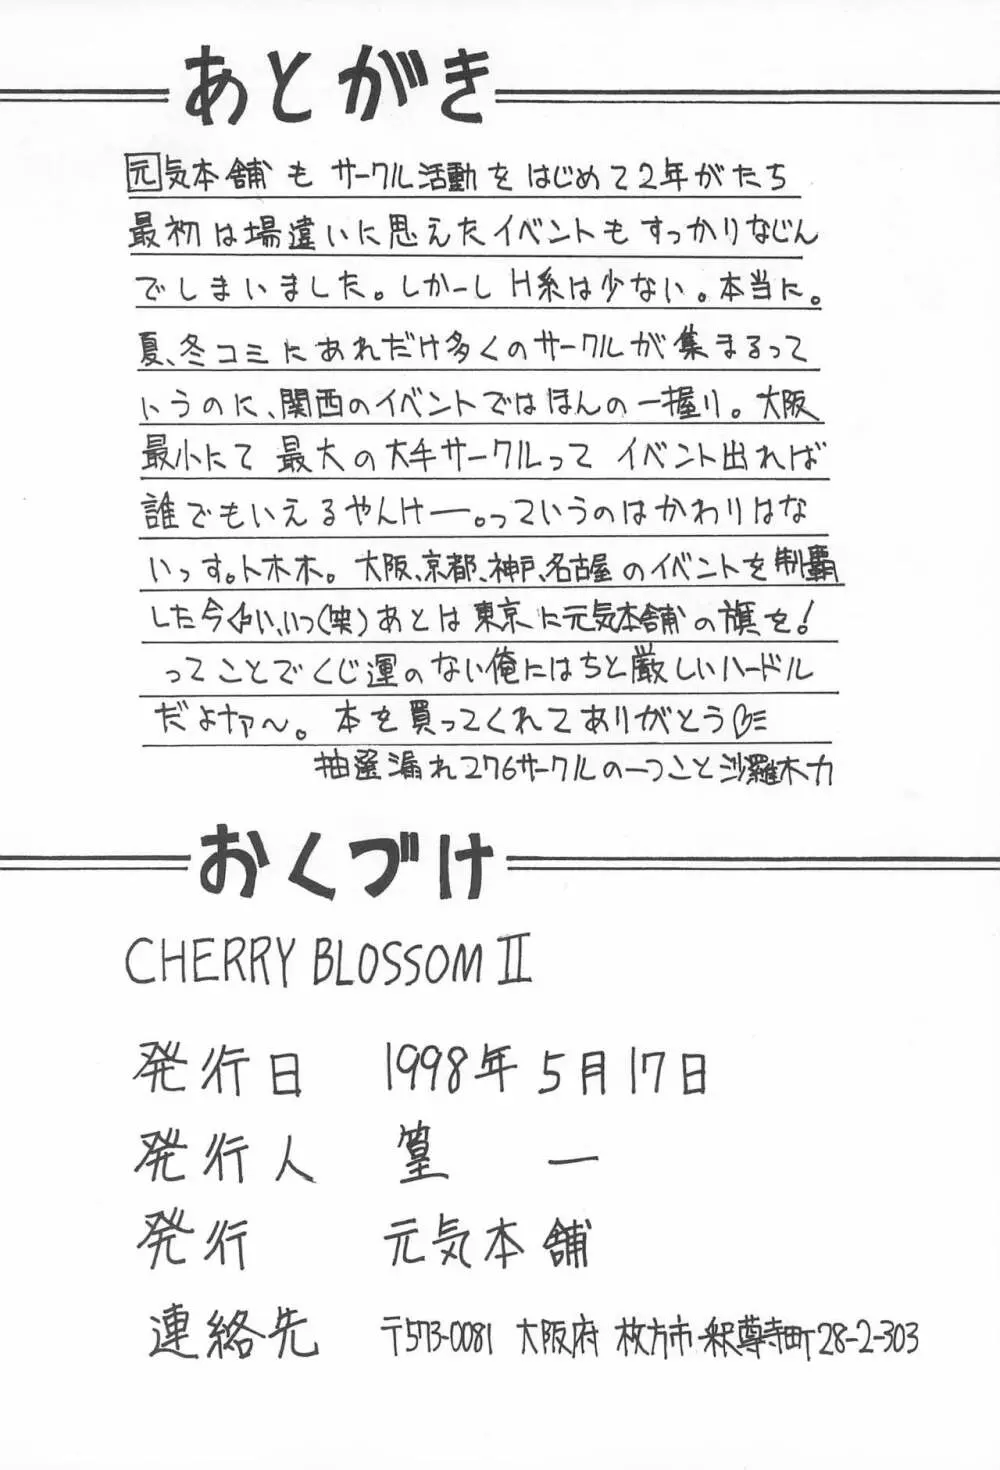 あとがき
元気本舗も サークル活動を はじめて2年がたち
最初は場違いに思えたイベントもすっかりなじん
でしまいました。しかーしH系は少ない。本当に。
夏、冬コミにあれだけ多くのサークルが集まるって
いうのに、関西のイベントではほんの一握り。大阪
最小にて最大の大手サークルって イベント出れば
誰でもいえるやんけー。っていうのはかわりはな
いっす。トホホ。大阪、京都、神戸、名古屋のイベントを制覇
した今(笑)あとは東京に元気本舗の旗を!
ってことでくじ運のない俺にはちと厳しいハードル
だよナァ〜。本を買ってくれてありがとう
抽選漏れ276サークルの一つこと沙羅木力
おくづけ
CHERRY BLOSSOM II
発行日 1998年5月17日
発行人 篁 一
発行 元気本舗
連絡先 〒573-0081 大阪府 枚方市 釈尊寺町28-2-303